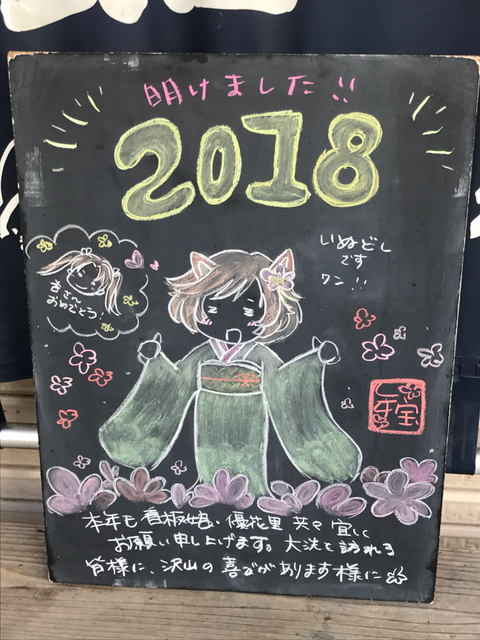 明けました!!
2018
いぬどし
です
ワン!!
さん
おめでとう!
本年も看板娘・優花里 共々 宜しく
お願い申し上げます。大洗を訪れる
皆様に、沢山の喜びがあります様に